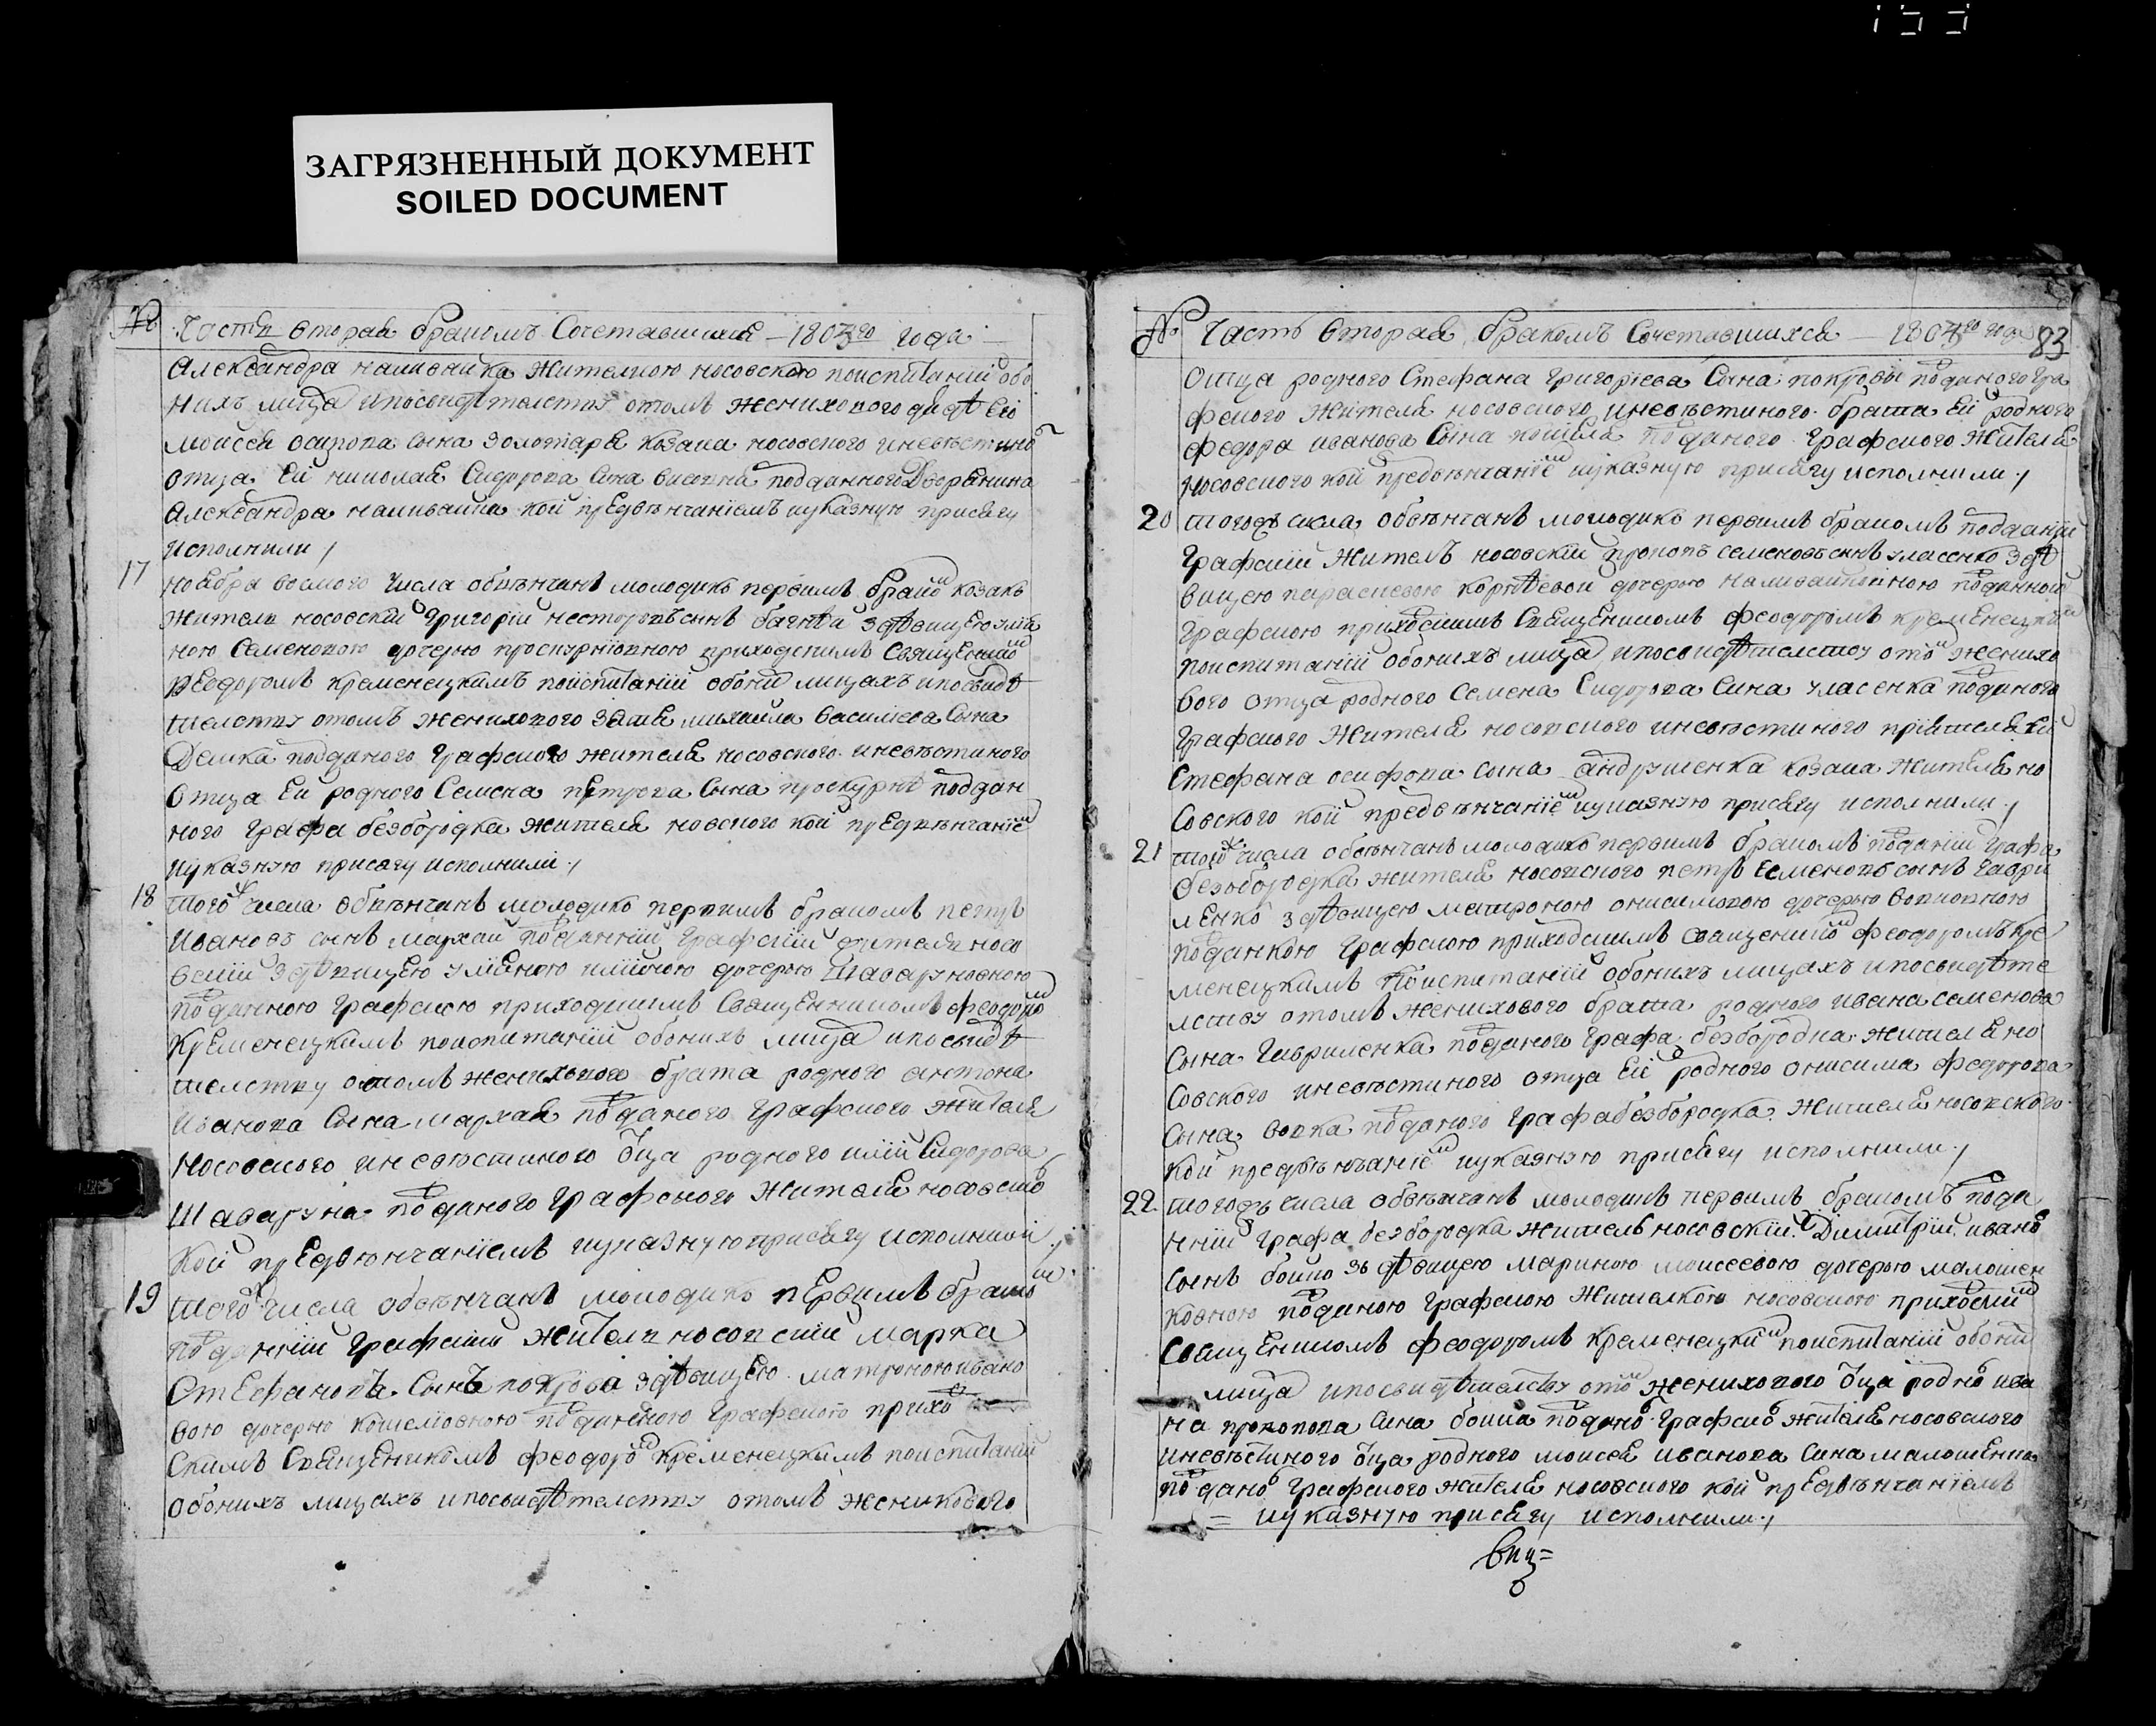 ЗАГРЯЗНЕННЫЙ ДОКУМЕНТ
SOILED DOCUMENT
№ Часть вторая бракомъ Сочетавшихся — 1803го года
Александра наливайка жителкою носовскою поиспитаніи обо
нихъ лица ипосвидѣтелству отомъ женихового дядѣ его
моисея осипова сына золотаря козака носовского иневѣстино
отца Ей николая Сидорова сина висоцка подданного Дворянина
Александра наливайки кои предвѣнчаніемъ иуказную присягу
исполнили /
17 ноября восмого числа обвѣнчанъ молодикъ первимъ брако козакъ
житель носовскій Григорій несторовъ синъ багнѣй здѣвицею улія
ною Семеновою дочерю проскурнѣвною приходскимъ Священико
Феодоромъ кременецкимъ поиспитаніи обоихъ лицахъ ипосвидѣ
телству отомъ женихового зятя михаила василиева Сына
Демка подданого Графского жителя носовского иневѣстиного
отца Ей родного Семена петрова Сына проскурнѣ поддан
ного Графа безбородка жителя новского кои предвѣнчаніе
иуказную присягу исполнили /
18 того числа обвѣнчанъ молодикъ первимъ бракомъ петръ
Ивановъ сынъ мархай подданній Графскій житель носо
вскій здѣвицею уляною иліиною дочерю Шаваруновною
подданною Графскою приходскимъ Священникомъ феодоро
Кременецкимъ поиспитаніи обоихъ лица ипосвидѣ
телству отомъ женихового брата родного антона
Иванова Сына мархая подданого Графского жителя
Носовского иневѣстиного Оца родного иліи Сидорова
Шаваруна подданого Графского жителя носовско
кои предвѣнчаніемъ иуказную присягу исполнили /
19 того числа обвѣнчанъ молодикъ первимъ брако
подданній Графскій житель носовскій марка
Стефановъ Сынъ покрова здѣвицею матроною ивано
вою дочерю кошеліовною подданною Графского прихо
Скимъ Священикомъ феодоро кременецкимъ поиспитаніи
обоихъ лицахъ ипосвидѣтелству отомъ женихового
№ Часть вторая бракомъ Сочетавшихся — 1803го года 83
Отца родного Стефана Григоріева Сына покрови подданого Гра
фского жителя носовского иневѣстиного брата Ей родного
федора иванова Сына кошеля подданого Графского жителя
носовского кои предвѣнчаніе иуказную присягу исполнили /
20 тогожъ числа обвѣнчанъ молодикъ первимъ бракомъ подданій
Графскій житель носовскій прокопъ семеновъ синъ уласенко здѣ
вицею параскевою корнѣевою дочерю наливайковною подданною
Графскою приходскимъ Священикомъ феодоромъ кременецки
поиспитаніи обоихъ лица ипосвидѣтелству ото женихо
вого отца родного Семена Сидорова Сина уласенка подданого
Графского жителя носовского иневѣстиного пріятеля Ей
Стефана осифова сына андрушенка козака жителя но
Совского кои предвѣнчаніе иуказную присягу исполнили /
21 того числа обвѣнчанъ молодикъ первимъ бракомъ подданій Графа
безбородка жителя носовского петръ Семеновъ сынъ Гаври
ленко здѣвицею матроною онисимовою дочерю вовковною
подданкою Графскою приходскимъ священико феодоромъ Кре
менецкимъ поиспитаніи обоихъ лицахъ ипосвидѣте
лству отомъ женихового брата родного ивана семенова
Сына Гавриленка подданого Графа безбородка жителя но
Совского иневѣстиного отца Ей родного онисима федорова
Сына вовка подданого Графа безбородка жителя носовского
кои предвѣнчаніе иуказную присягу исполнили /
22 тогожъ числа обвѣнчанъ молодикъ первимъ бракомъ подда
нній Графа безбородка житель носовскій Димитрій ивано
Сынъ бойко зъ дѣвицею мариною моисеевою дочерю малошен
ковною подданою Графскою жителкою носовскою приходски
Священикомъ феодоромъ Кременецки поиспитаніи обоихъ
лица ипосвидѣтелству ото женихового Оца родно ива
на прокопова Сина бойка поддано Графско жителя носовского
иневѣстиного Оца родного моисея иванова Сина малошенка
поддано Графского жителя носовского кои предвѣнчаніемъ
= иуказную присягу исполнили /